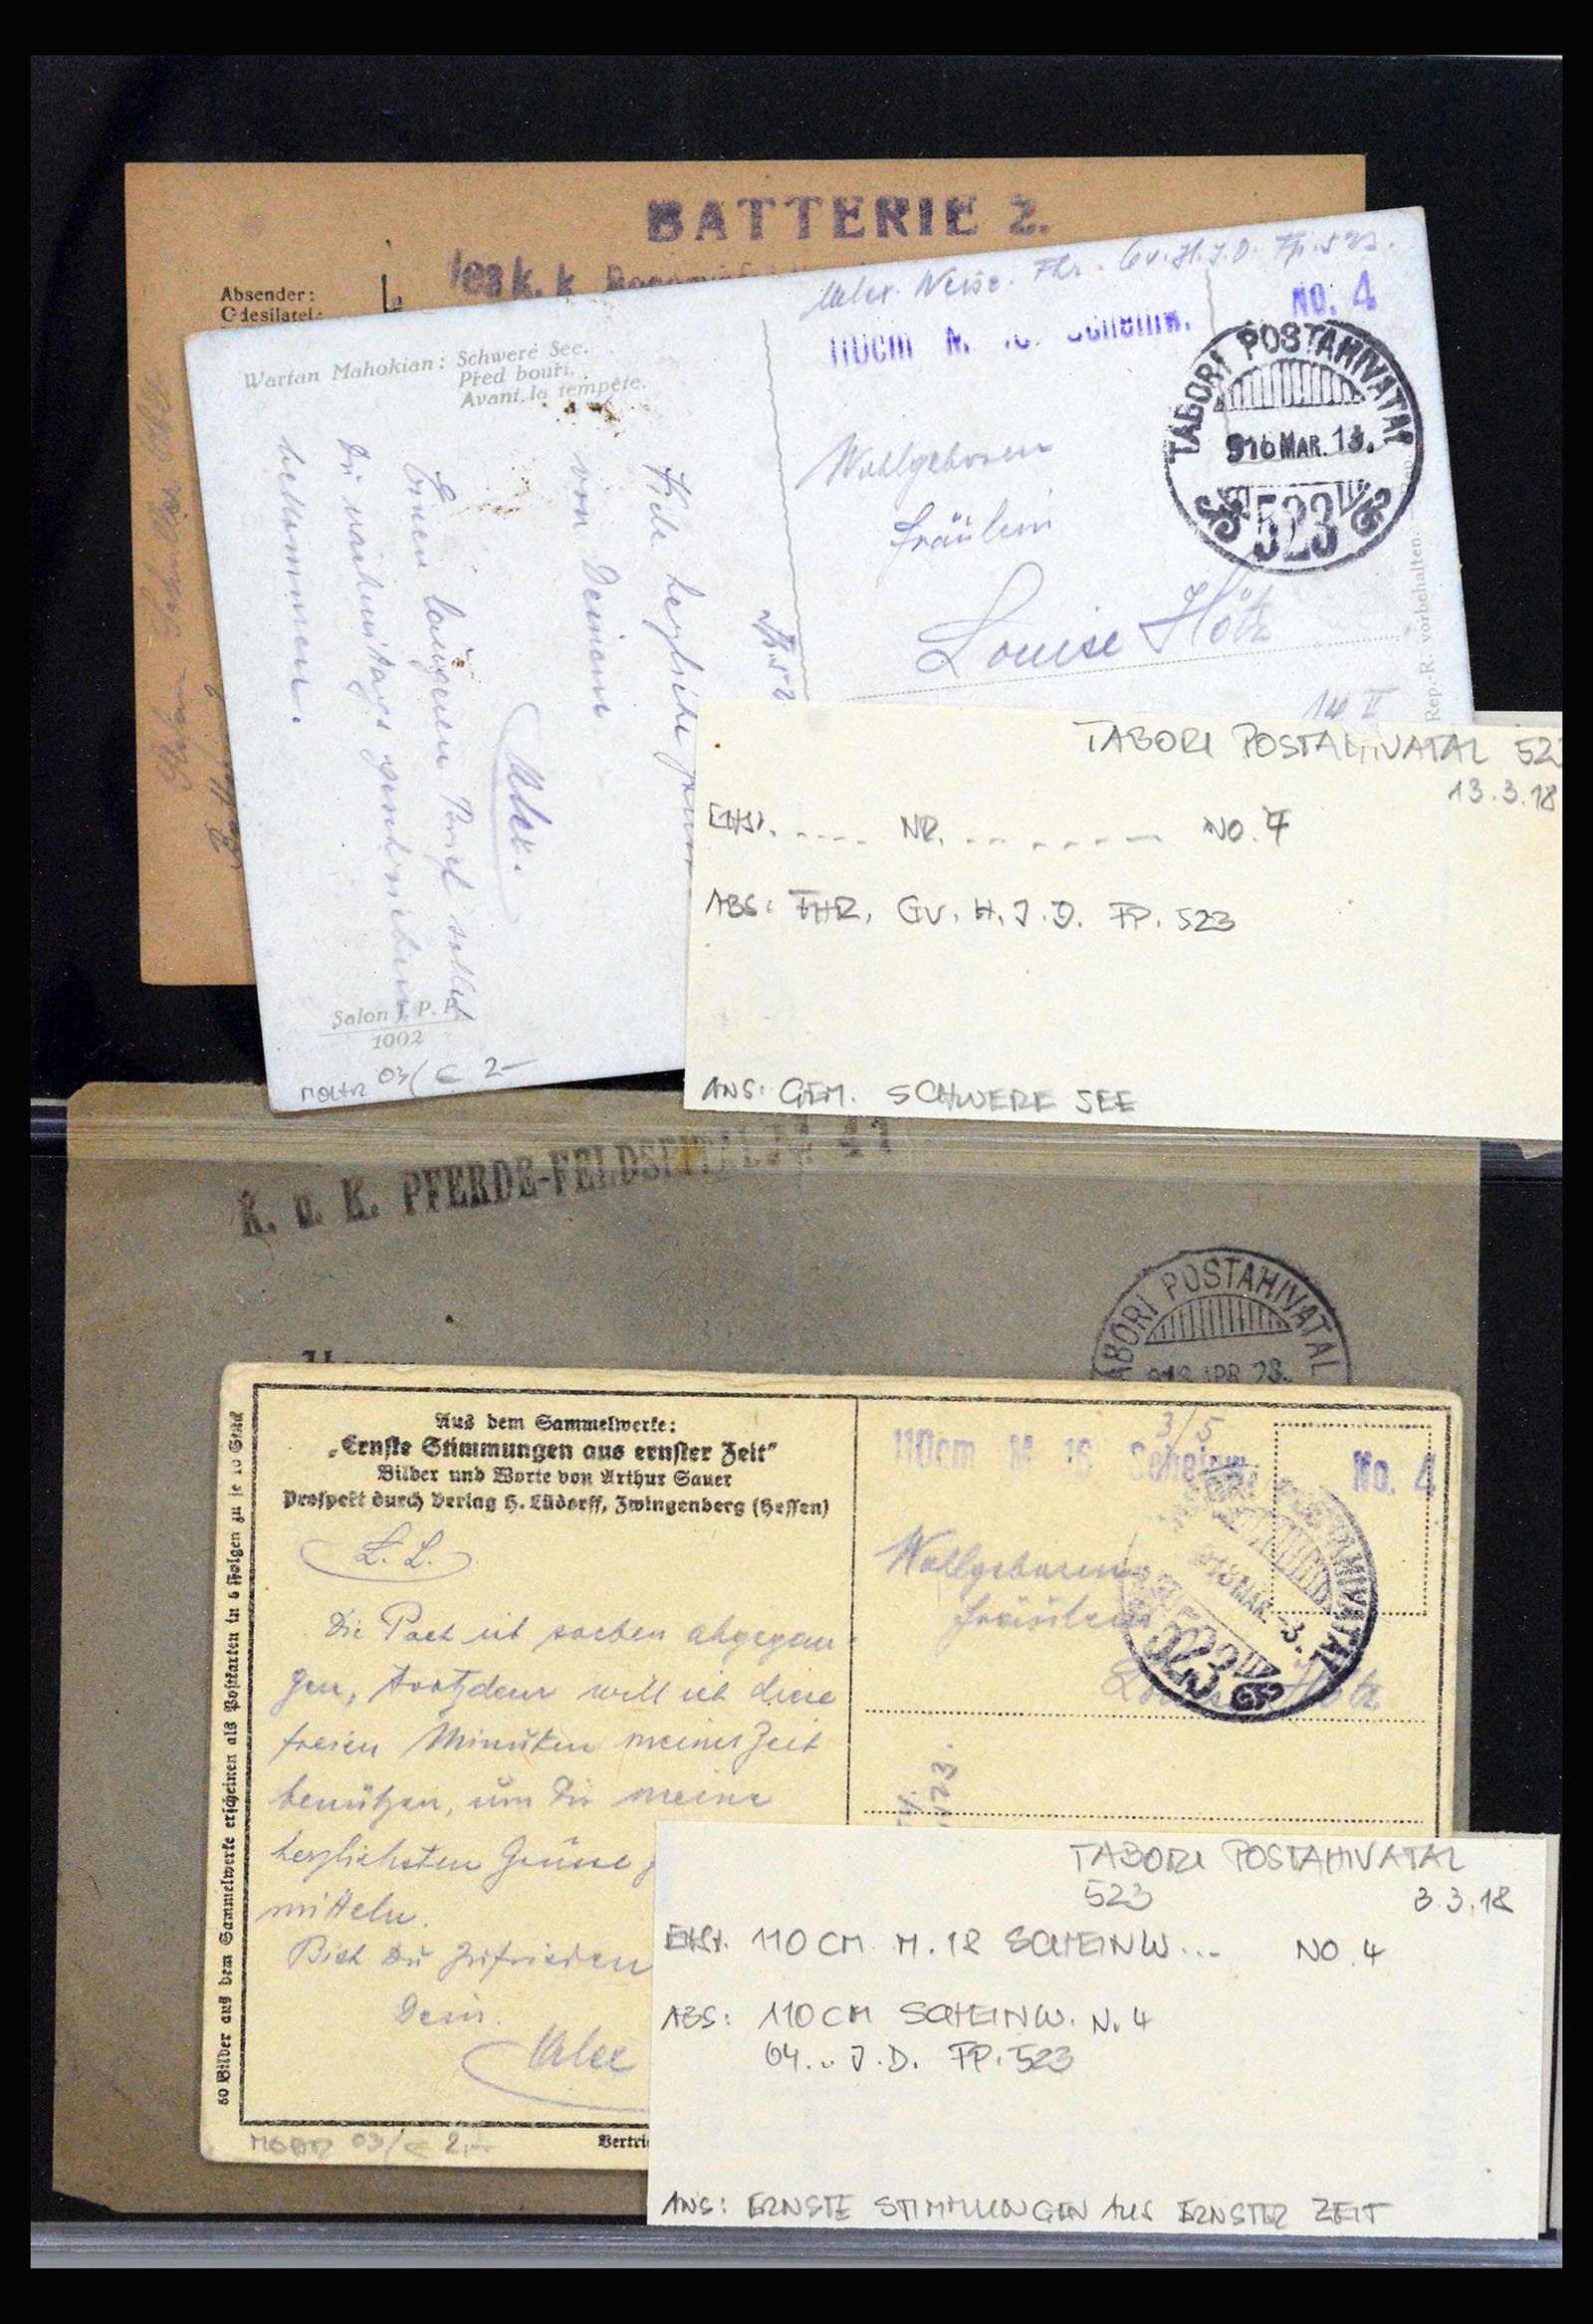 BATTERIE 2.
k. k.
Absender:
Odesilatel:
Alex. Weise. Fhr. Gv. H. J. D. Fp. 523.
110cm M. Scheinw. No. 4
Wartan Mahokian: Schwere See.
Před bouří.
Avant la tempête.
TABORI POSTAHIVATAL
916 MAR. 13.
523
Wohlgeboren
Fräulein
Louise Hötz
14 II
Rep.-R. vorbehalten.
Viele herzliche
von Deinem
Alex.
Einen langen Brief sollst
Du nachmittags
bekommen.
Salon J. P. P.
1002
03/ € 2-
TABORI POSTAHIVATAL 52
13.3.18
EHST. ---- NR. ------- NO. 4
ABS: FHR. GV. H. J. D. FP. 523
ANS: GEM. SCHWERE SEE
K. u. K. PFERDE-FELDSPITAL
TABORI POSTAHIVATAL
APR 28.
Aus dem Sammelwerke:
„Ernste Stimmungen aus ernster Zeit"
Bilder und Worte von Arthur Sauer
Prospekt durch Verlag H. Lüdorff, Zwingenberg (Hessen)
60 Bilder aus dem Sammelwerke erscheinen als Postkarten in 6 Folgen zu je 10 Stück
3/5
110cm M 18 Scheinw. No. 4
POSTAHIVATAL
918 MAR. -3.
523
Wohlgeboren
Fräulein
Louise Hötz
L. L.
Die Post ist soeben abgegan-
gen, trotzdem will ich diese
freien Minuten meiner Zeit
benützen, um Dir meine
herzlichsten Grüsse
mitteln.
Bist Du zufrieden
Dein
Alex
03/ € 2.-
Vertri
TABORI POSTAHIVATAL
523 3.3.18
EHST. 110 CM M. 18 SCHEINW... NO. 4
ABS: 110 CM SCHEINW. N. 4
64. J. D. FP. 523
ANS: ERNSTE STIMMUNGEN AUS ERNSTER ZEIT